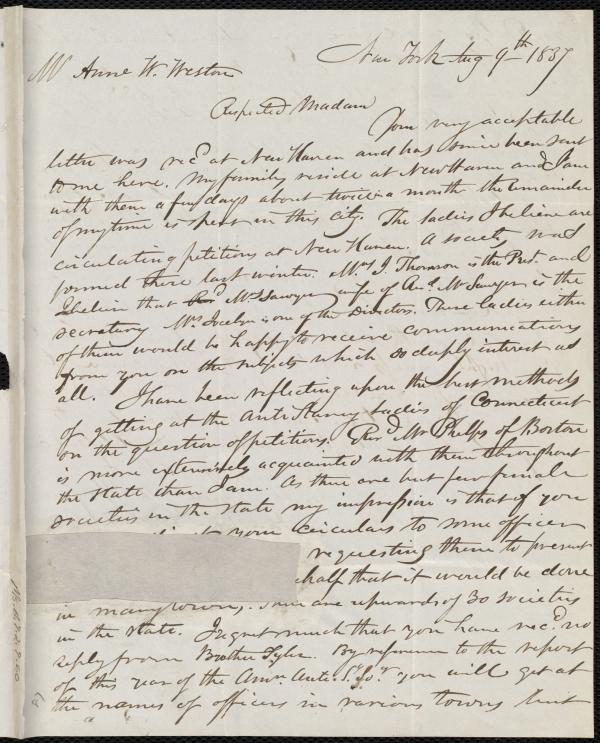 New York Aug 9th 1837
Anne W. Weston
Respected Madam
Your very acceptable
letter was recd at New Haven and has since been sent
to me here. My family reside at New Haven and I am
with them a few days about twice a month the remainder
of my time is spent in this city. The ladies I believe are
circulating petitions at New Haven. A society was
formed there last winter. Mrs J. Thomson is the Pred. and
I believe that Mrs Sawyer wife of Mr Sawyer is the
secretary Mrs Jocelyn is one of the Directors. These ladies either
of them would be happy to receive communications
from you on the subject which so deeply interest us
all. I have been reflecting upon the best methods
of getting at the Anti Slavery Ladies of Connecticut
on the question of petitions. Revd Mr Phelps of Boston
is more extensively acquainted with them throughout
the State than I am. As there are but few female
societies in the state my impression is that if you
your circulars to some officer
requesting them to present
half that it would be done
in many towns. There are upwards of 30 societies
in the state. I regret much that you have recd no
reply from Brother Tyler. By reference to the report
of this year of the Amn Anti S. So.y you will get at
the names of officers in various towns but
No. A.9.2.9.60